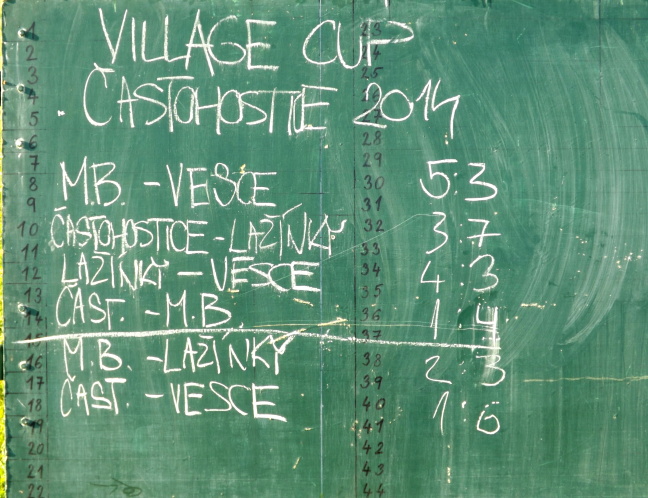 VILLAGE CUP
ČASTOHOSTICE 2014
M.B. - VESCE 5:3
ČASTOHOSTICE - LAŽÍNKY 3:7
LAŽÍNKY - VESCE 4:3
ČAST. - M.B. 1:4
M.B. - LAŽÍNKY 2:3
ČAST. - VESCE 1:6
1
2
3
4
5
6
7
8
9
10
11
12
13
14
15
16
17
18
19
20
21
22
23
24
25
27
28
29
30
31
32
33
34
35
36
37
38
39
40
41
42
43
44